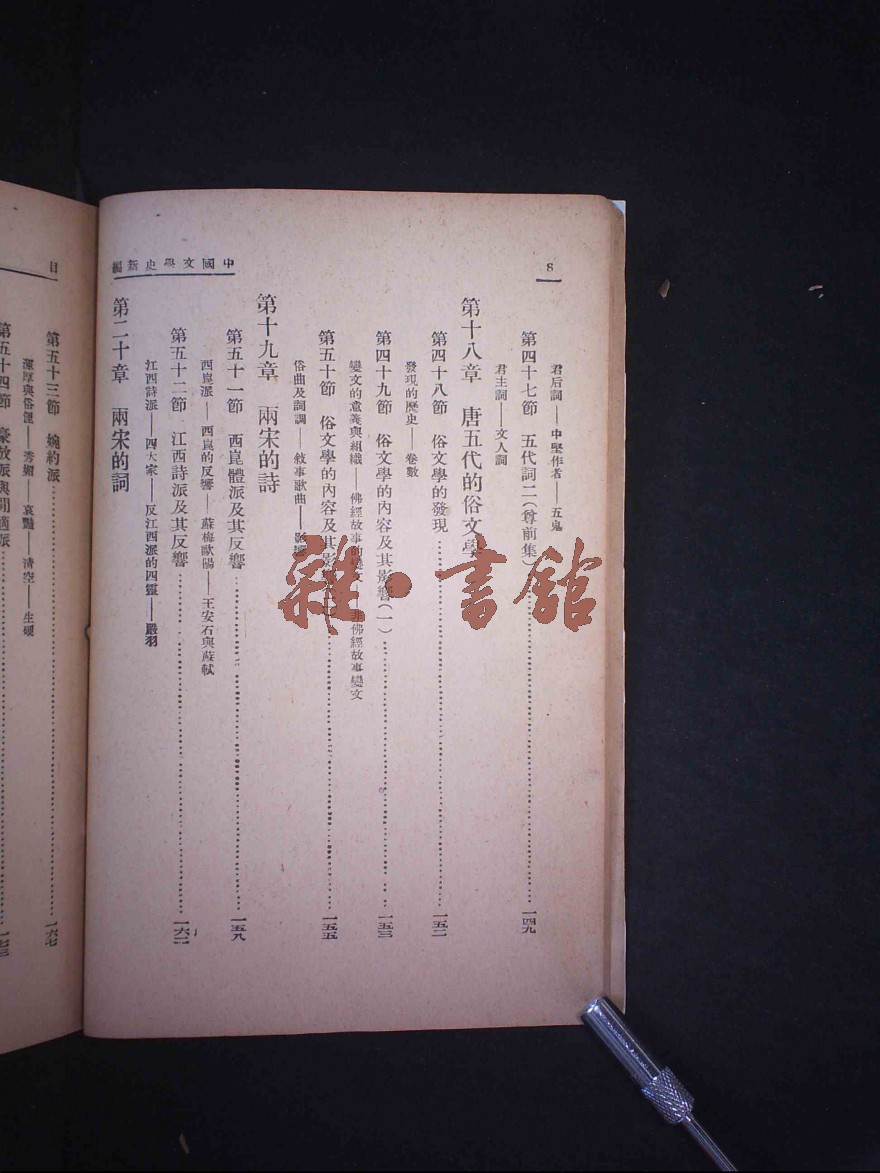 中國文學史新編
8
君后詞——中堅作者——五鬼
第四十七節 五代詞二(尊前集)……一四九
君主詞——文人詞
第十八章 唐五代的俗文學
第四十八節 俗文學的發現……一五二
發現的歷史——卷數
第四十九節 俗文學的內容及其影響(一)……一五三
變文的意義與組織——佛經故事的變文——非佛經故事變文
第五十節 俗文學的內容及其影響……一五五
俗曲及詞調——敘事歌曲——影響
第十九章 兩宋的詩
第五十一節 西崑體派及其反響……一五九
西崑派——西崑的反響——蘇梅歐陽——王安石與蘇軾
第五十二節 江西詩派及其反響……一六二
江西詩派——四大家——反江西派的四靈——嚴羽
第二十章 兩宋的詞
目
第五十三節 婉約派……一六七
渾厚與俗俚——秀媚——哀豔——清空——生硬
第五十四節 豪放派與閒適派……一七三
雜·書館